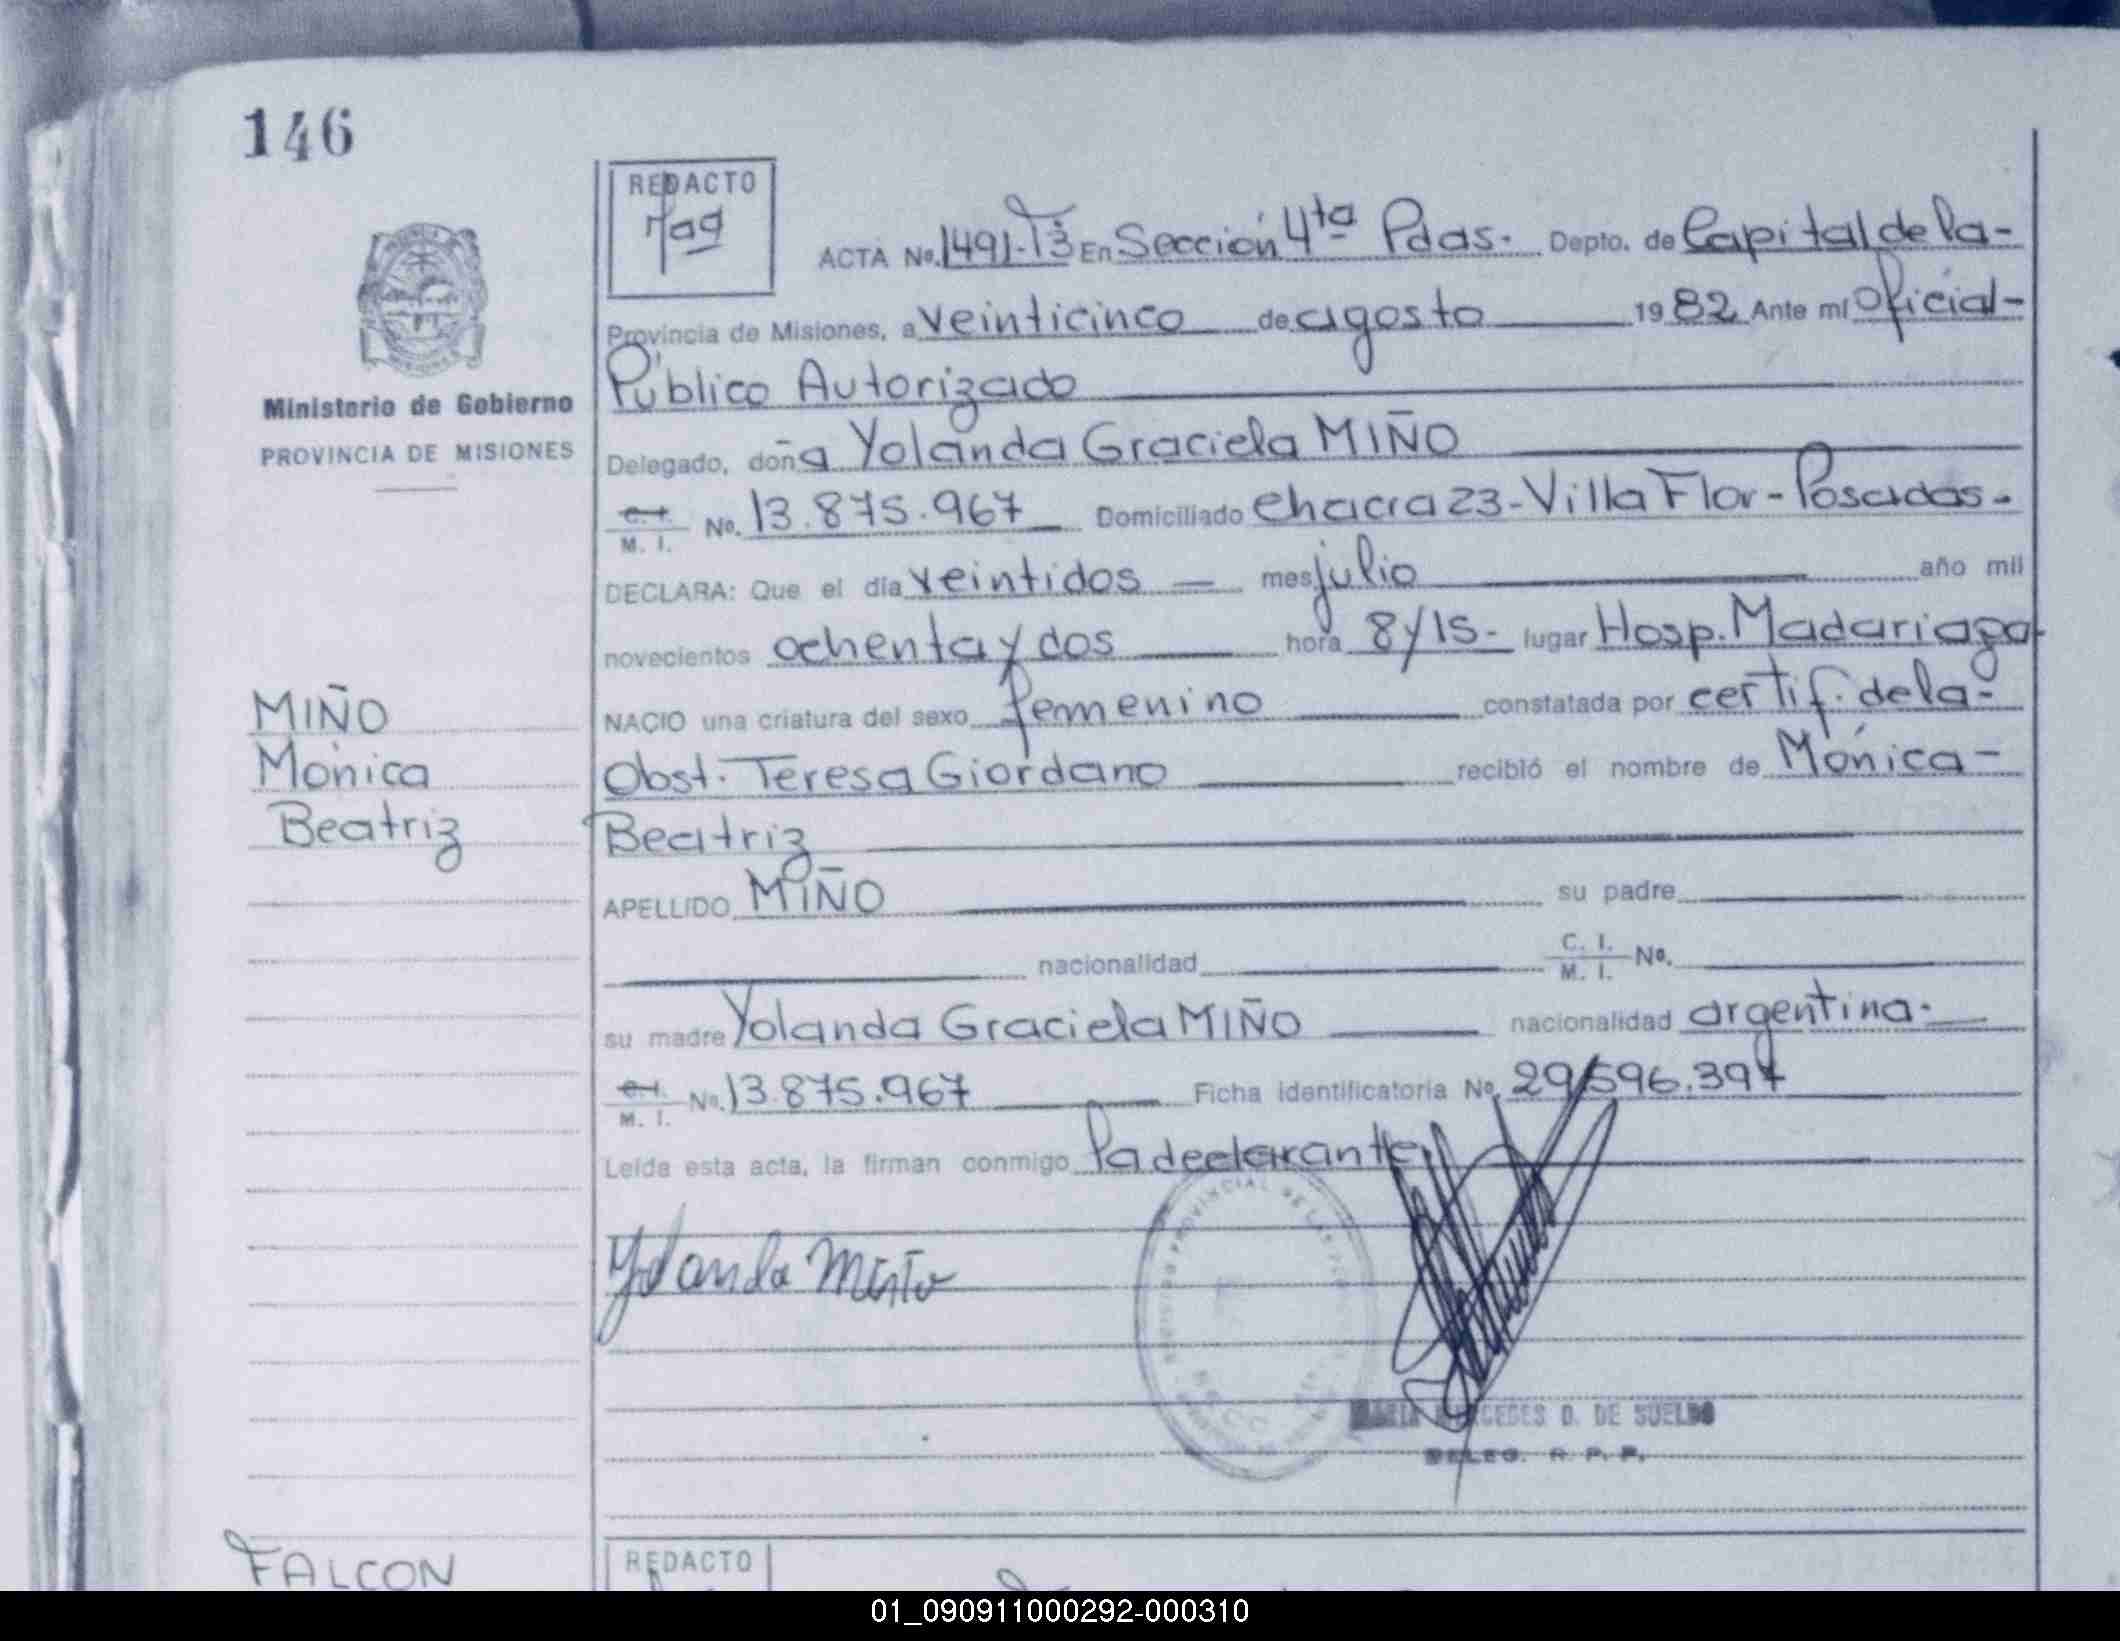 146
REDACTO
ACTA No. 1491-T3 En Sección 4ta Pdas. Depto. de Capital de la-
Provincia de Misiones, a veinticinco de agosto 1982 Ante mí Oficial-
Público Autorizado
Ministerio de Gobierno
PROVINCIA DE MISIONES
Delegado, doña Yolanda Graciela MIÑO
C. I.
M. I. No. 13.875.967 Domiciliado Chacra 23-Villa Flor-Posadas-
DECLARA: Que el día veintidos mes julio año mil
novecientos ochenta y dos hora 8y15- lugar Hosp. Madariaga
NACIO una criatura del sexo femenino constatada por certif. de la-
Obst. Teresa Giordano recibió el nombre de Mónica-
Beatriz
MIÑO
Mónica
Beatriz
APELLIDO MIÑO su padre
nacionalidad C. I.
M. I. No.
su madre Yolanda Graciela MIÑO nacionalidad argentina.
C. I.
M. I. No. 13.875.967 Ficha identificatoria No. 29.596.397
Leída esta acta, la firman conmigo la declarante
Yolanda Miño
PROVINCIAL DE LAS
MARIA MERCEDES D. DE SUELDO
DELEG. R. P. P.
FALCON
REDACTO
01_090911000292-000310